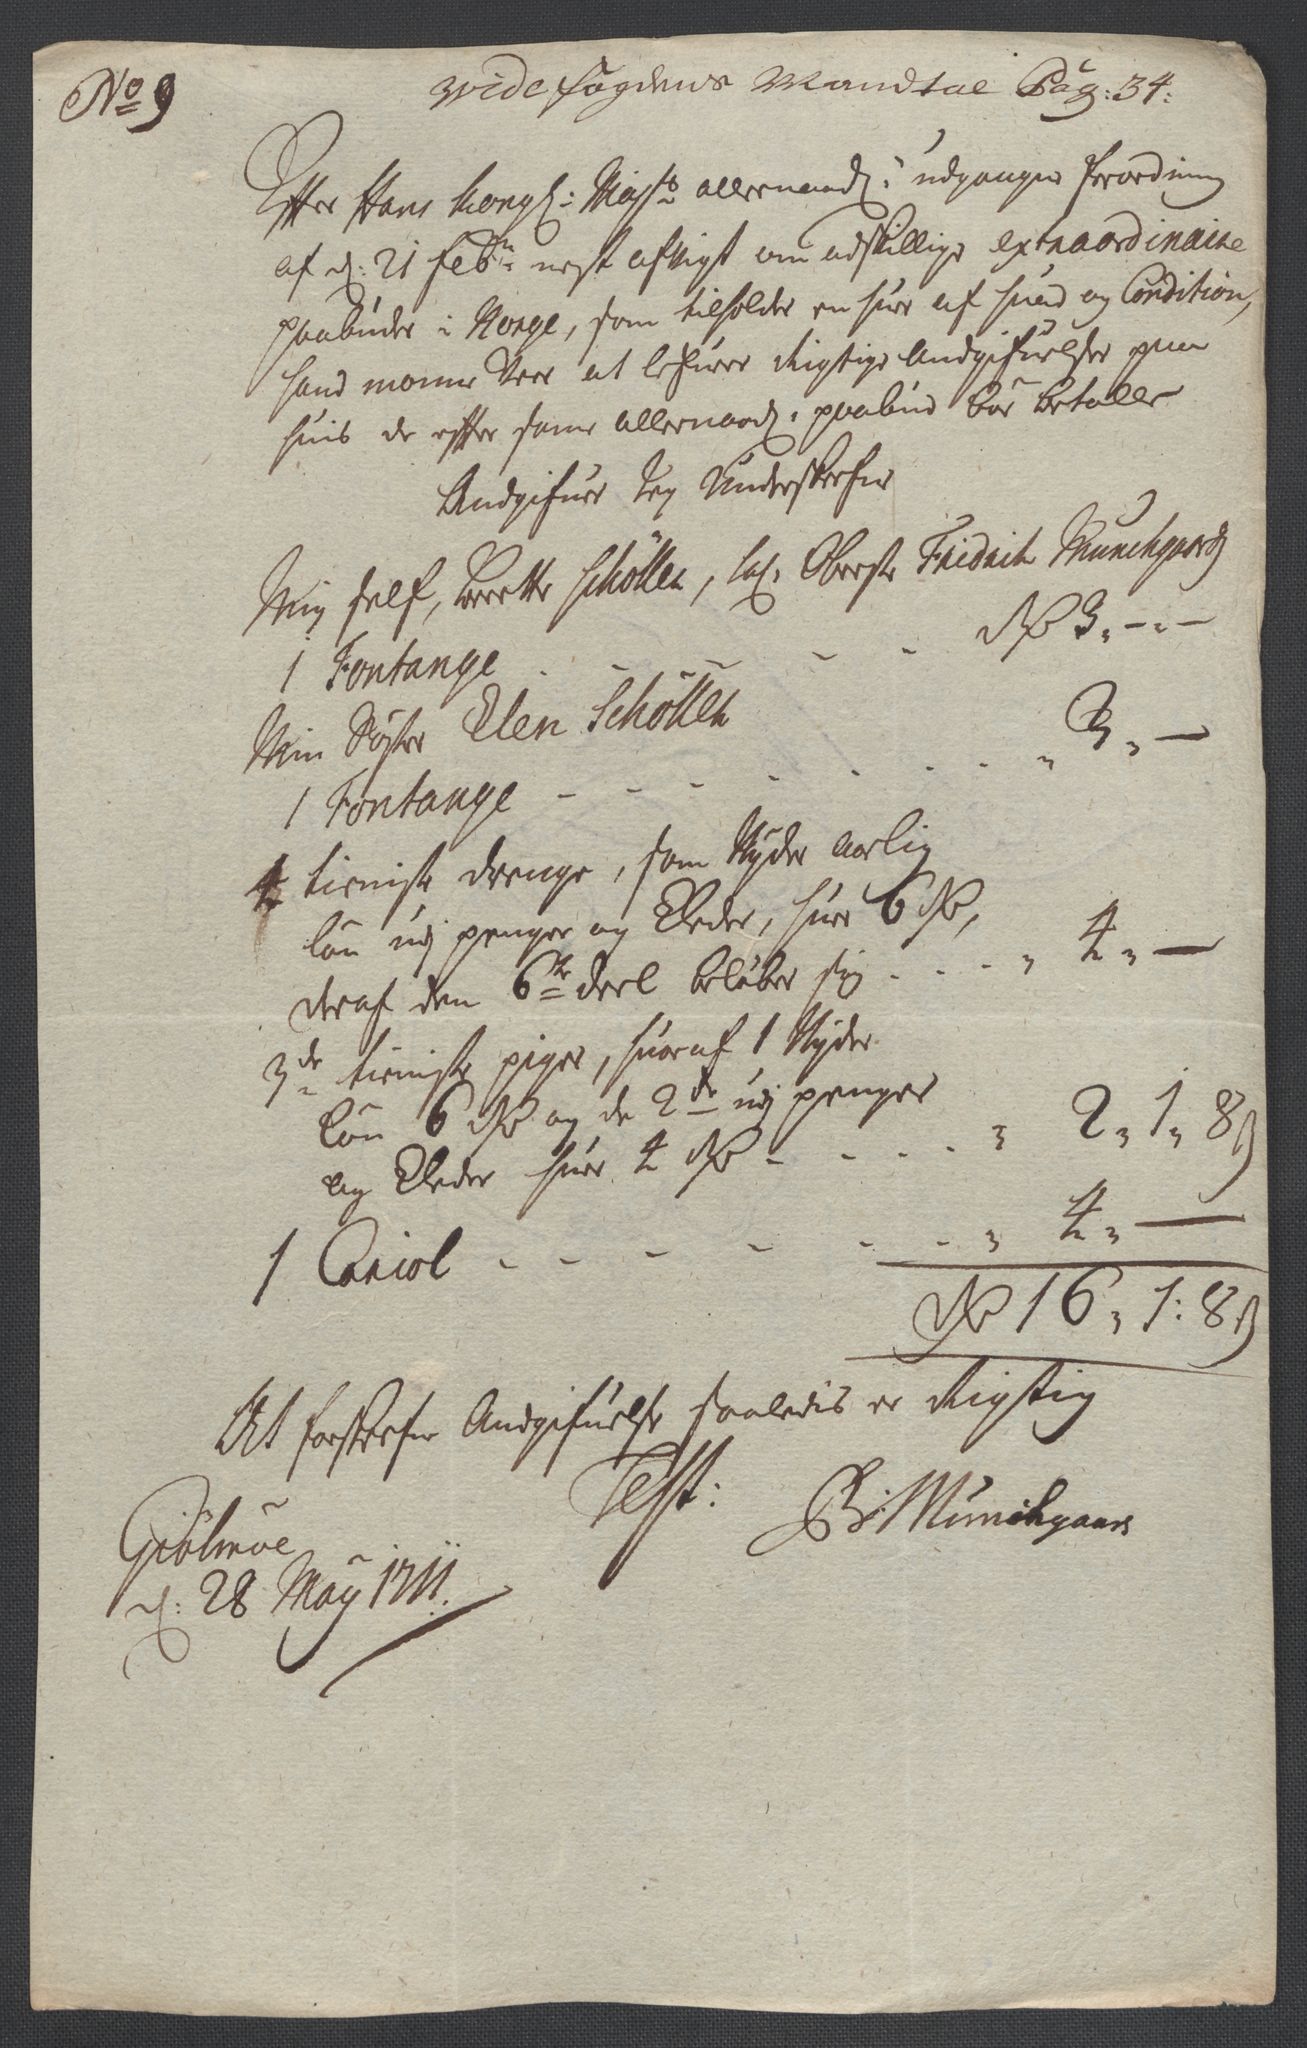 No 9
vide fogdens Mandtal Pag: 34:
Effter Hans Kongl: Mayts allernaad: udgangen forordning
af d: 21 Febr: nest afvigt om adskillige extraordinaire
paabuder i Norge, som tilholder en huer af huad og Condition,
hand monne vere at lefuere Rigtige Andgifuelser paa
huis de effter samme allernaad: paabud bør betalle
Andgifuer Jeg Underskrefne
Mig self, Berette Schöller, Sal: Oberste Fridrich Munchgaards
1 Fontange - - - - Rdr 3 „ - „ -
Min Søster Elen Schöller
1 Fontange - - - - - - - „ 3 „ -
4 tieniste drenge, som Nyder aarlig
løn udj penger og Kleder, huer 6 Rdr,
deraf den 6te deel beløber sig - - - „ 4 „ -
3de tieniste piger, huoraf 1 Nyder
Løn 6 Rdr og de 2de udj penger
og Kleder huer 4 Rdr - - - - „ 2 „ 1 „ 8 ß
1 Cariol - - - - - - „ 4 „ -
Rdr 16 „ 1: 8 ß
At forskrefne Andgifuelse saaledis er Rigtig
Test:
B: Munchgaards
Giölmöe
d: 28 May 1711.